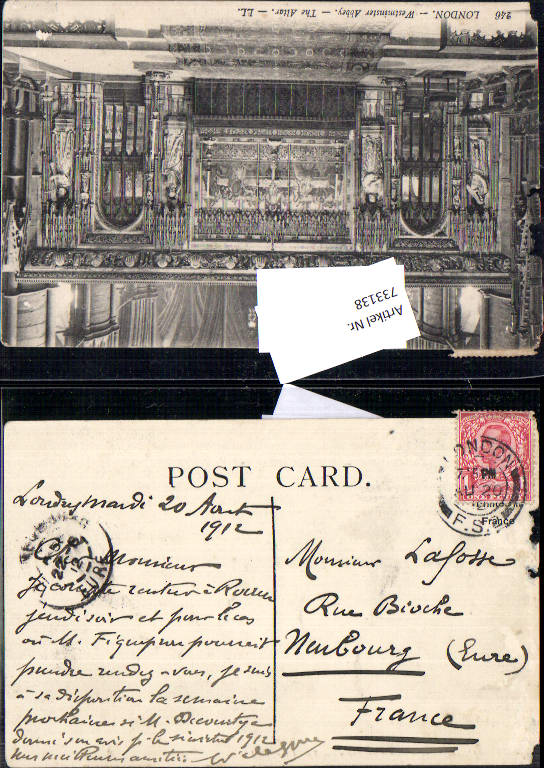 246 LONDON. — Westminster Abbey. — The Altar. — LL.
Artikel Nr.
733138
POST CARD.
LONDON
PM
F.S.
France
Londres mardi 20 Août
1912
Monsieur
Je compte rentrer à Rouen
jeudi soir et pour le cas
où M. pourrait
prendre rendez-vous, je suis
à sa disposition la semaine
prochaine si M.
1912
Monsieur Lafosse
Rue Bioche
Neubourg (Eure)
France